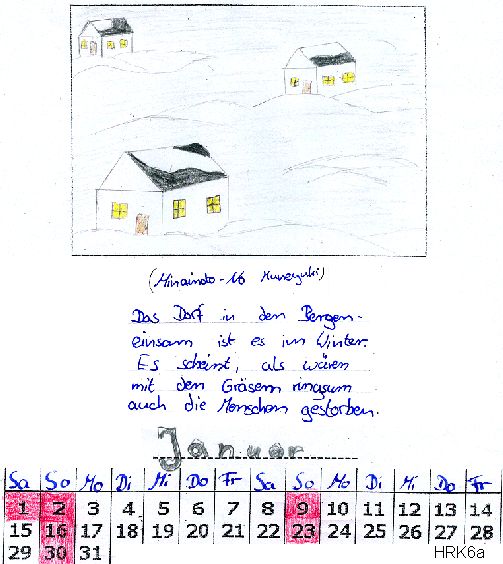 (Minamoto-No Muneyuki)
Das Dorf in den Bergen -
einsam ist es im Winter.
Es scheint, als wären
mit den Gräsern ringsum
auch die Menschen gestorben.
Januar
Sa So Mo Di Mi Do Fr Sa So Mo Di Mi Do Fr
1 2 3 4 5 6 7 8 9 10 11 12 13 14
15 16 17 18 19 20 21 22 23 24 25 26 27 28
29 30 31
HRK6a